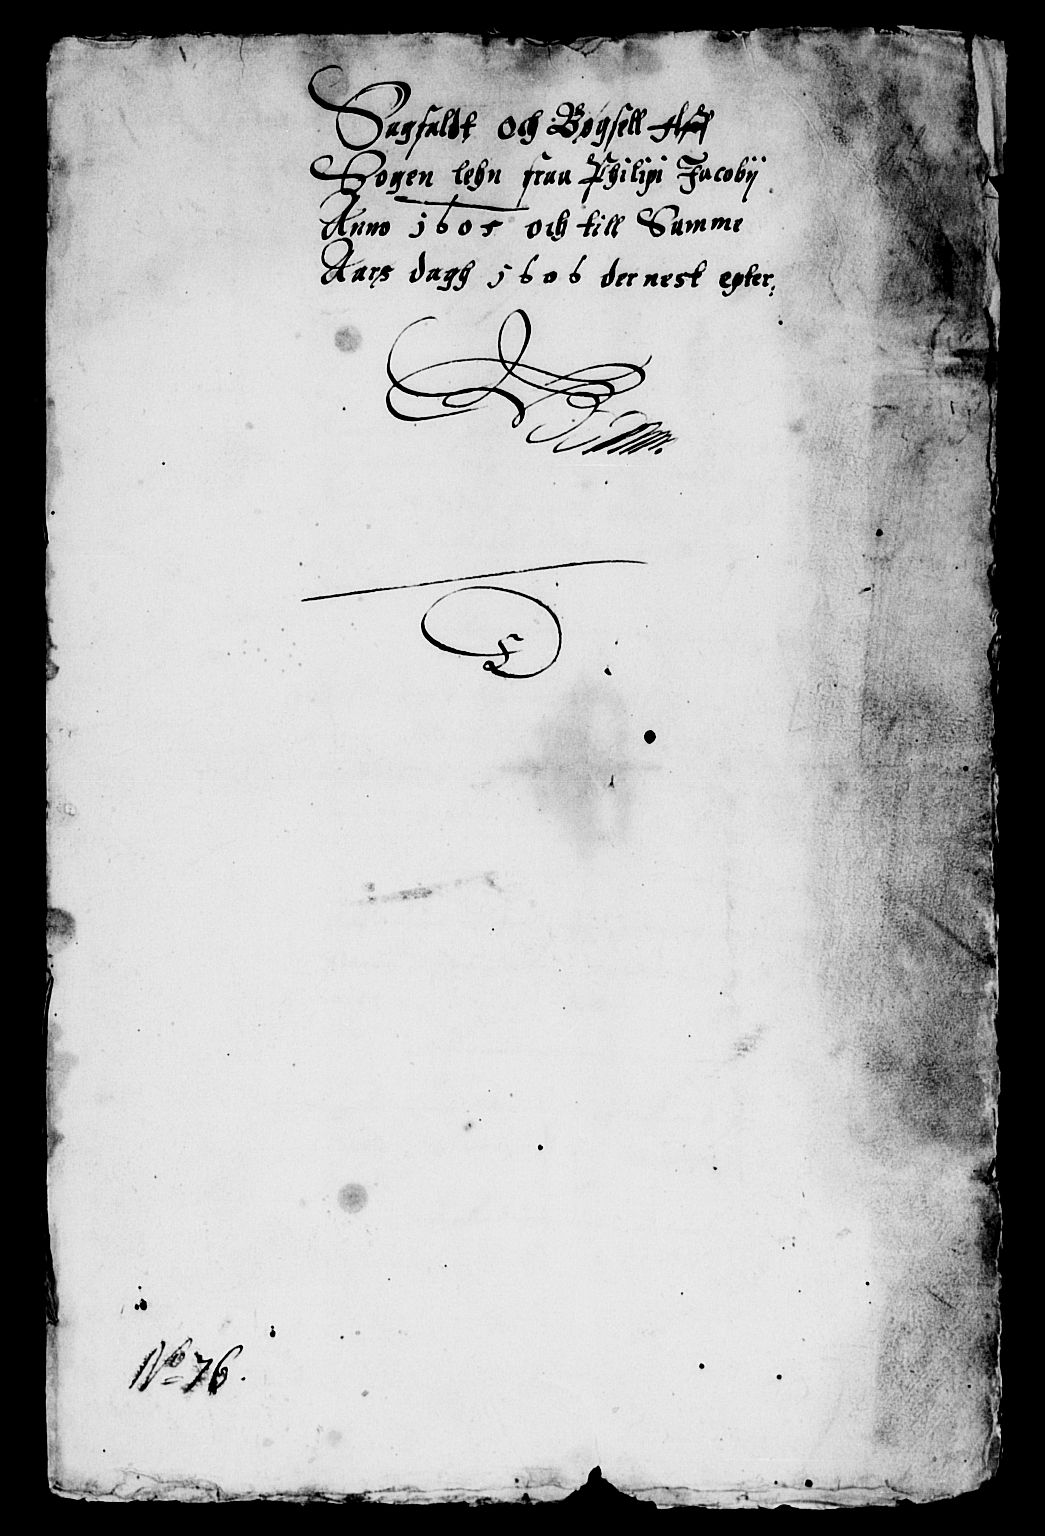 Sagfaldt och Bøgsell Aff
Sogen lehn fraa Philipi Jacobij
Anno 1605 och till Samme
Aars dagh 1606 der nest epter.
L
No 76.